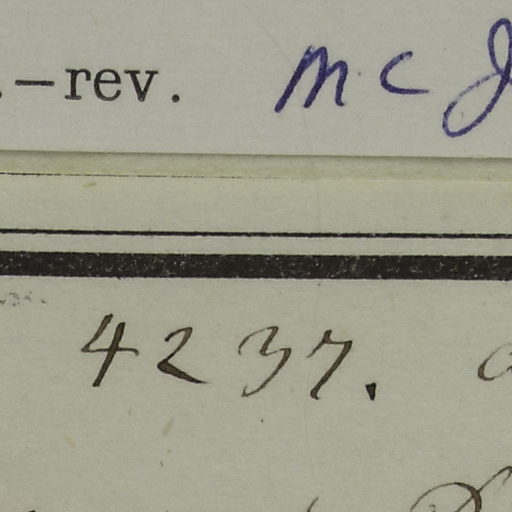 .-rev. M. C. J
4237.